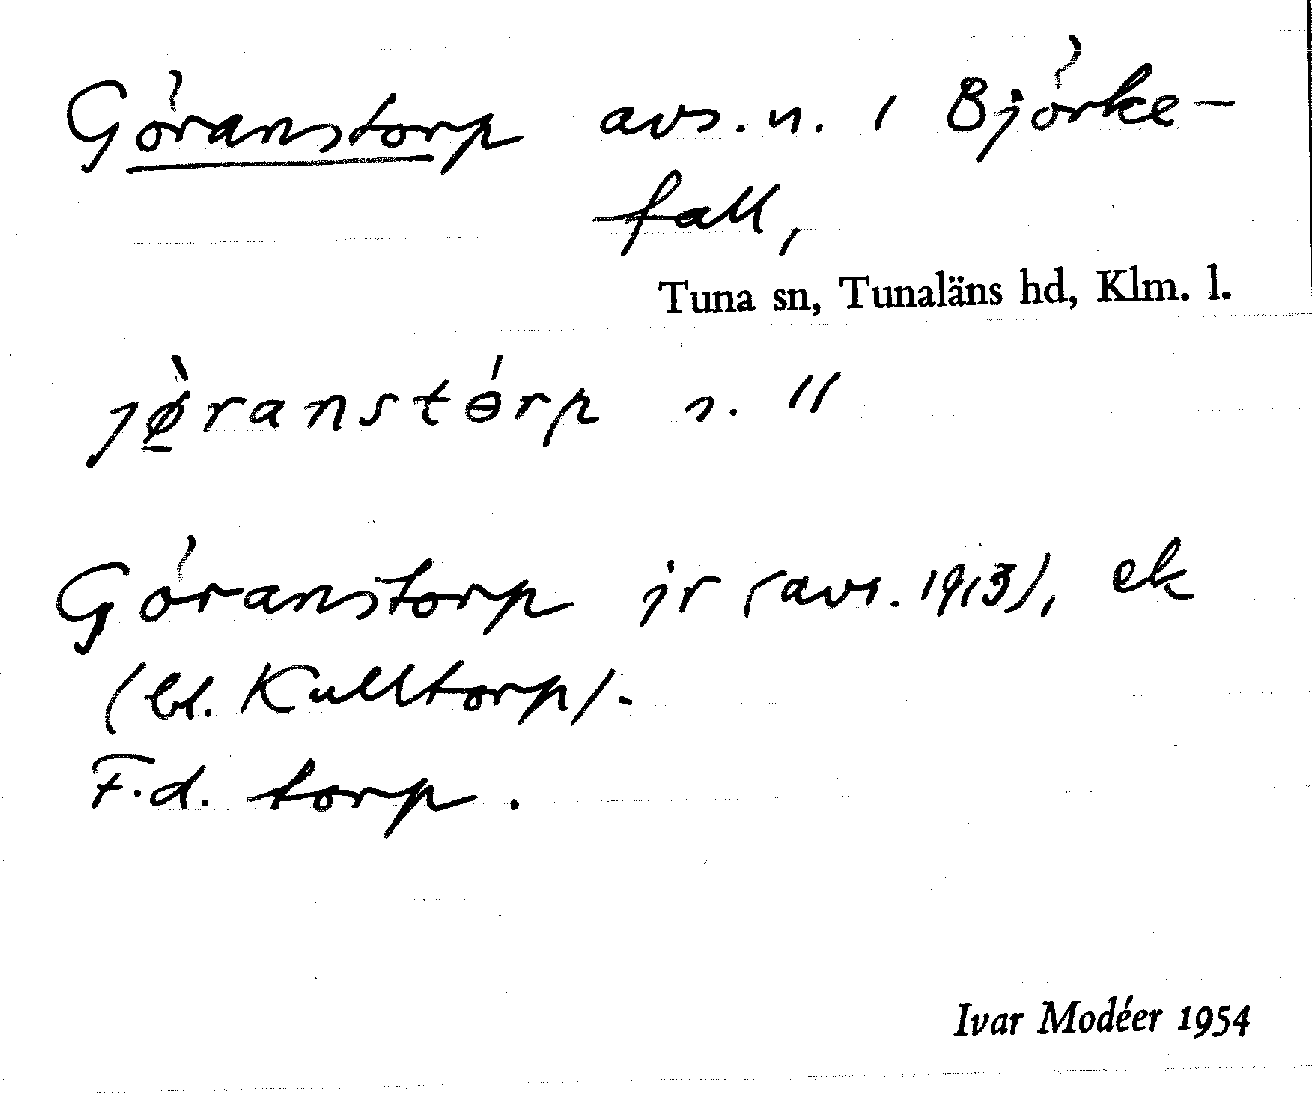 Göranstorp avs. n. i Björke-
fall,
Tuna sn, Tunaläns hd, Klm. l.
jø̀ranstɵ́rp s. "
Göranstorp jr (avs. 1913), ek
(bl. Kulltorp).
F.d. torp.
Ivar Modéer 1954